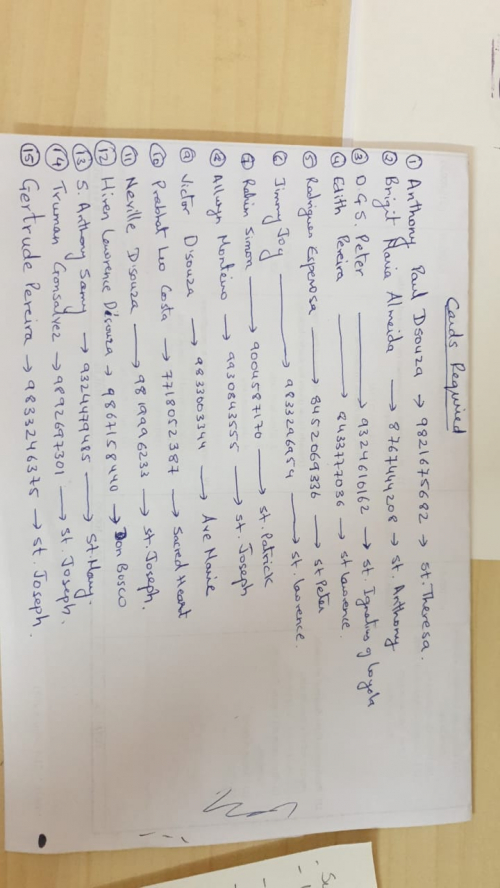 Cards Required
① Anthony Paul Dsouza → 9821675682 → St. Theresa.
② Brigit Maria Almeida → 876744208 → St. Anthony
③ D.G.S. Peter → 9324616162 → St. Ignatius of Loyola
④ Edith Pereira → 8433777036 → St Lawrence.
⑤ Rodrigues Esperosa → 8452069336 → St Peter
⑥ Jimmy Joy → 9833296954 → St. Lawrence.
⑦ Robin Simon → 9004587170 → St. Patrick
⑧ Allwyn Monteiro → 9930843555 → St. Joseph
⑨ Victor D'souza → 9833003344 → Ave Marie
⑩ Prabhat Leo Costa → 7718052387 → Sacred Heart
⑪ Neville D'souza → 9819996233 → St. Joseph.
⑫ Hiren Lawrence D'souza → 9867158440 → Don Bosco
⑬ S. Anthony Samy → 9324479485 → St Mary.
⑭ Truman Gonsalvez → 9892697301 → St. Joseph.
⑮ Gertrude Pereira → 9833246375 → St. Joseph.